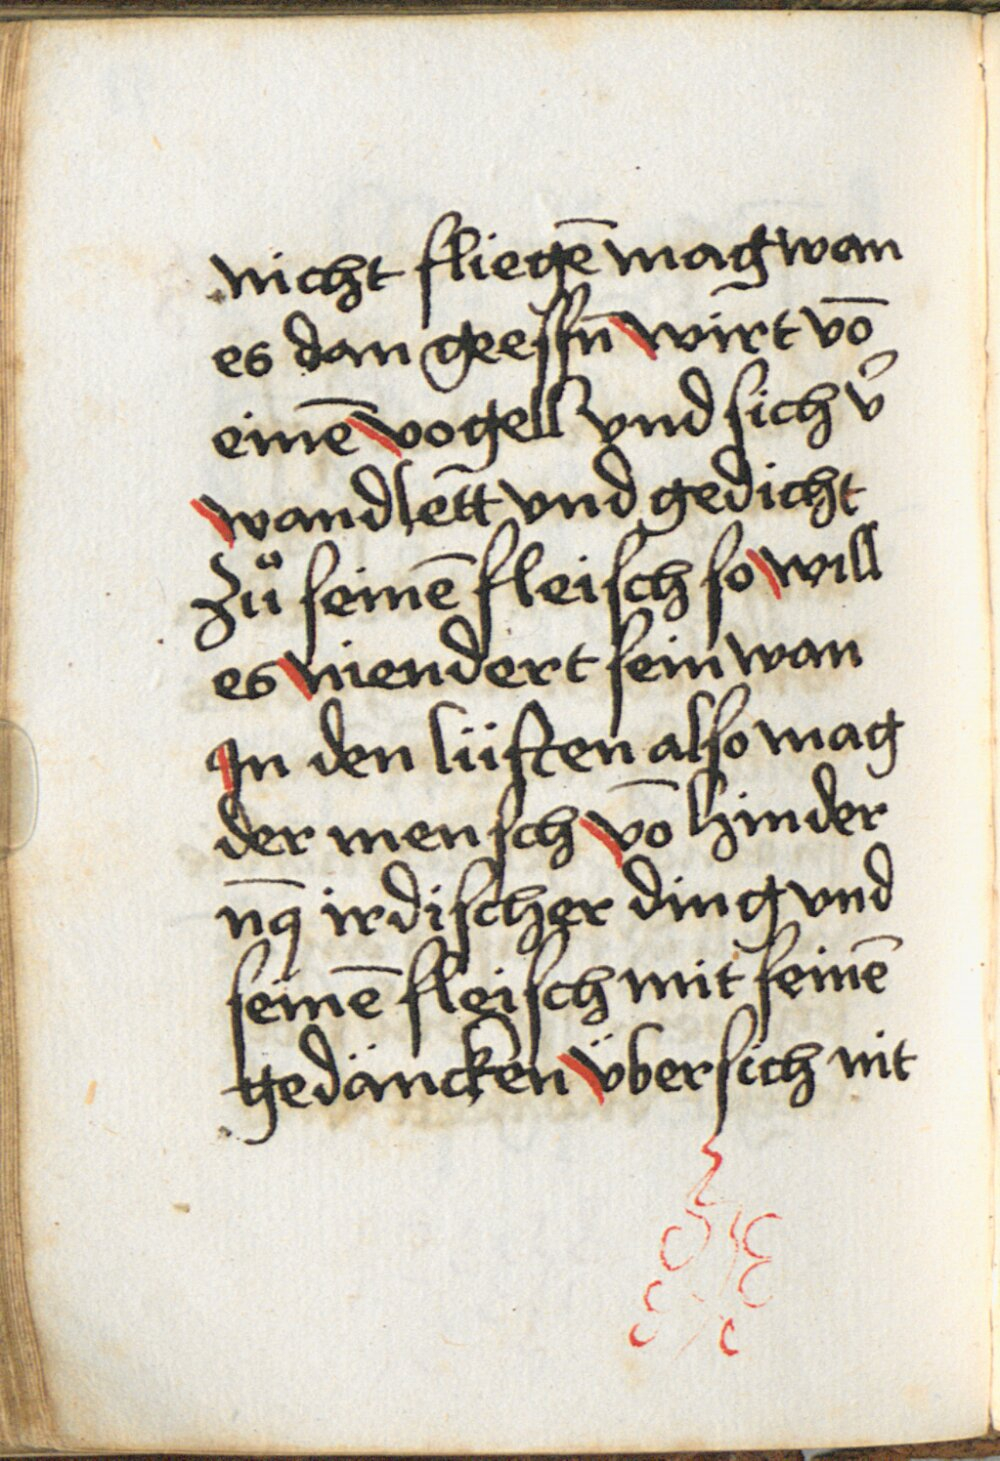 nicht fliegē mag wan
es dan geessn̄ wirt vō
einē vogell vnd sich v̉
wandlett vnd gedicht
Zů seinē fleisch so will
es niendert sein wan
In den lüften also mag
der mensch vō hinder
nꝰ irdischer ding vnd
seinē fleisch mit seinē
gedäncken über sich nit